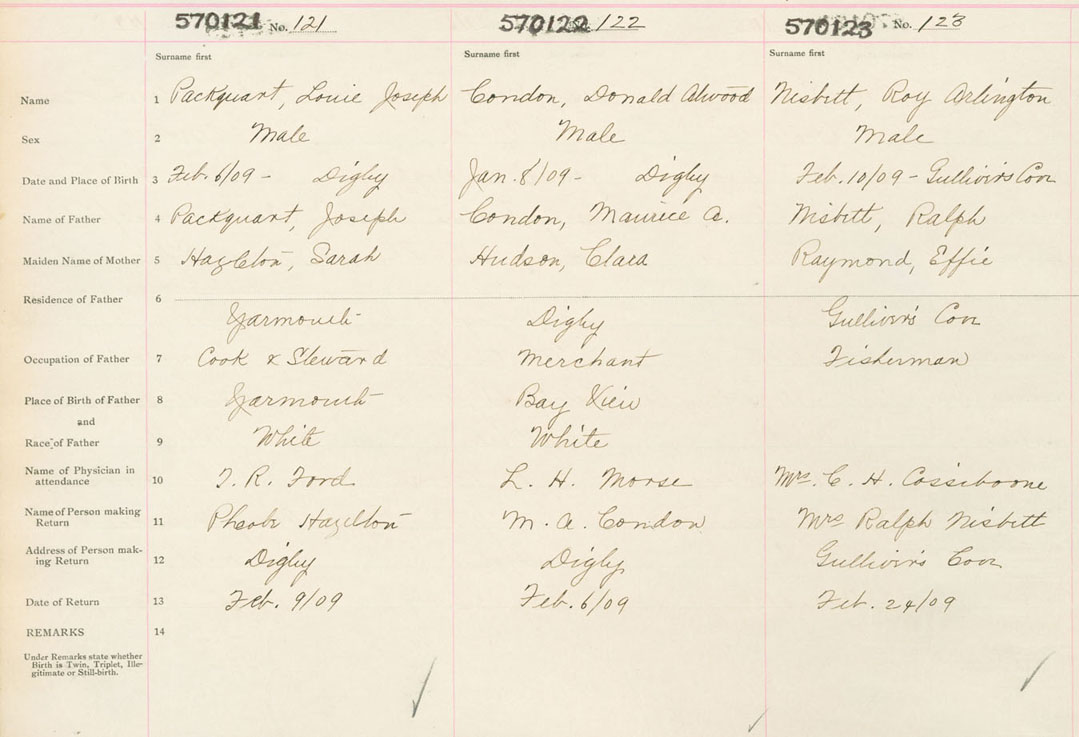 570121 No. 121 570122 No. 122 570123 No. 123
Surname first Surname first Surname first
Name 1 Packquart, Louie Joseph Condon, Donald Alwood Nisbitt, Roy Arlington
Sex 2 Male Male Male
Date and Place of Birth 3 Feb. 6/09 - Digby Jan. 8/09 - Digby Feb. 10/09 - Gullivir's Cov
Name of Father 4 Packquart, Joseph Condon, Maurice A. Nisbitt, Ralph
Maiden Name of Mother 5 Hazelton, Sarah Hudson, Clara Raymond, Effie
Residence of Father 6
Yarmouth Digby Gullivir's Cov
Occupation of Father 7 Cook & Steward Merchant Fisherman
Place of Birth of Father 8 Yarmouth Bay View
and
Race of Father 9 White White
Name of Physician in
attendance 10 T. R. Ford L. H. Morse Mrs. C. H. Cossiboone
Name of Person making
Return 11 Pheobe Hazelton M. A. Condon Mrs Ralph Nisbitt
Address of Person mak-
ing Return 12 Digby Digby Gullivir's Cov
Date of Return 13 Feb. 9/09 Feb. 6/09 Feb. 24/09
REMARKS 14
Under Remarks state whether
Birth is Twin, Triplet, Ille-
gitimate or Still-birth.